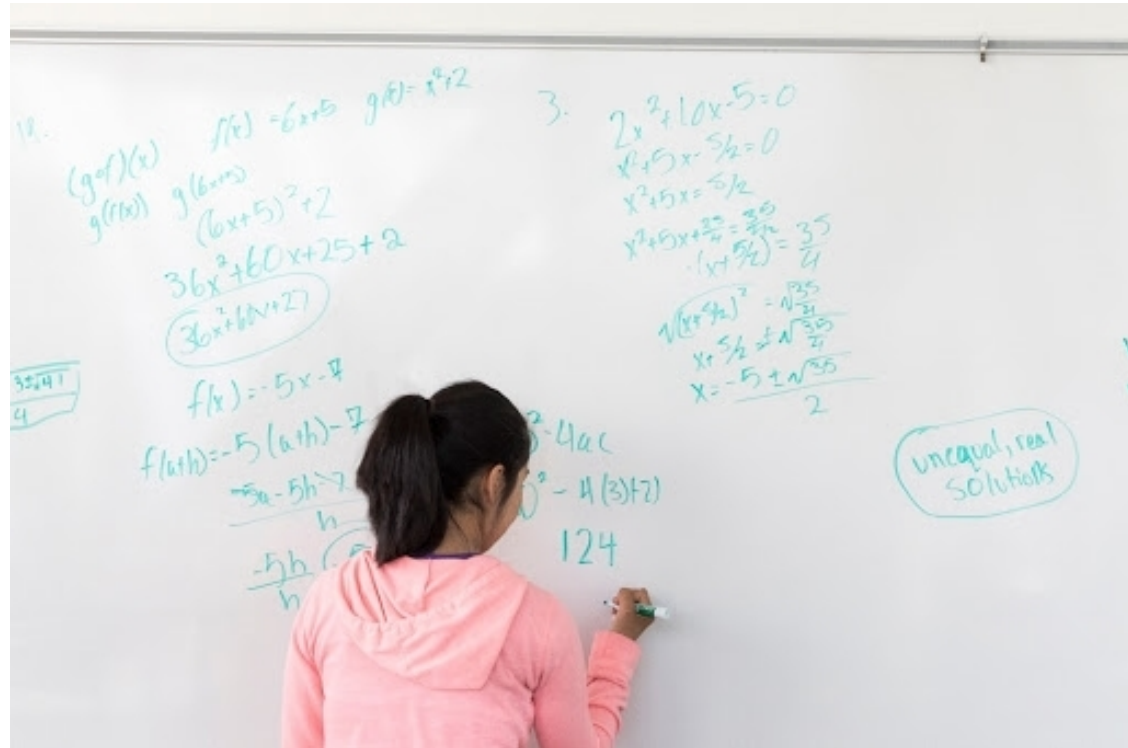 18.
f(x) = 6x+5 g(x) = x²+2
(gof)(x)
g(f(x)) g(6x+5)
(6x+5)²+2
36x²+60x+25+2
36x²+60x+27
3±√41
4
f(x)=-5x-7
f(a+h)=-5(a+h)-7
-5a-5h-7
h
-5h
h
²-4ac
)²-4(3)(-7)
124
3.
2x²+10x-5=0
x²+5x-5/2=0
x²+5x=5/2
x²+5x+25/4=35
(x+5/2)=35/4
√(x+5/2)²=√35/4
x+5/2=±√35/4
x=-5±√35
2
unequal, real
solutions